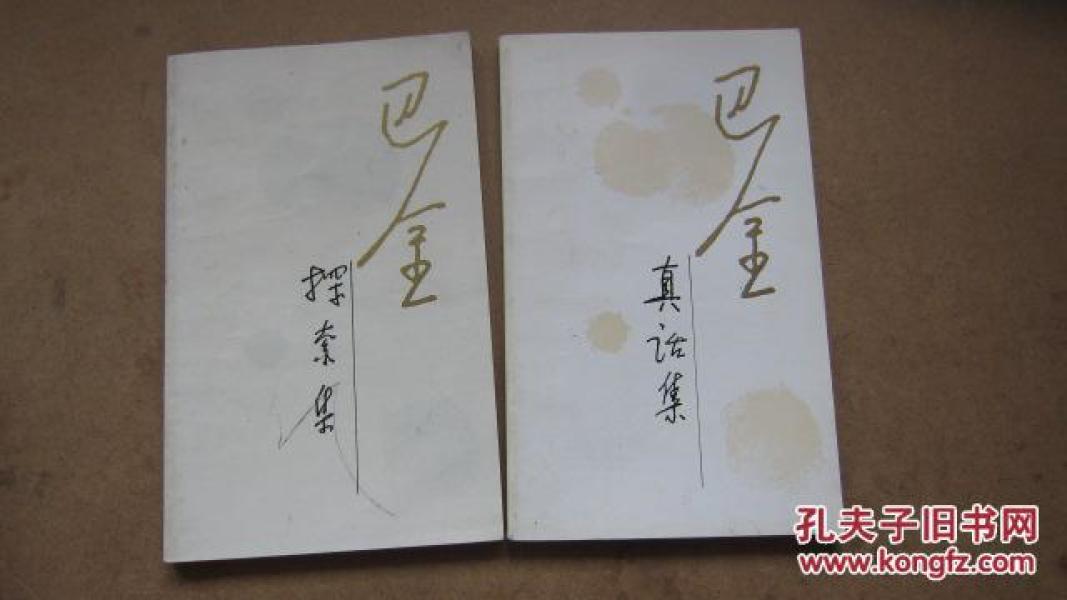 巴金
探索集
巴金
真话集
孔夫子旧书网
www.kongfz.com